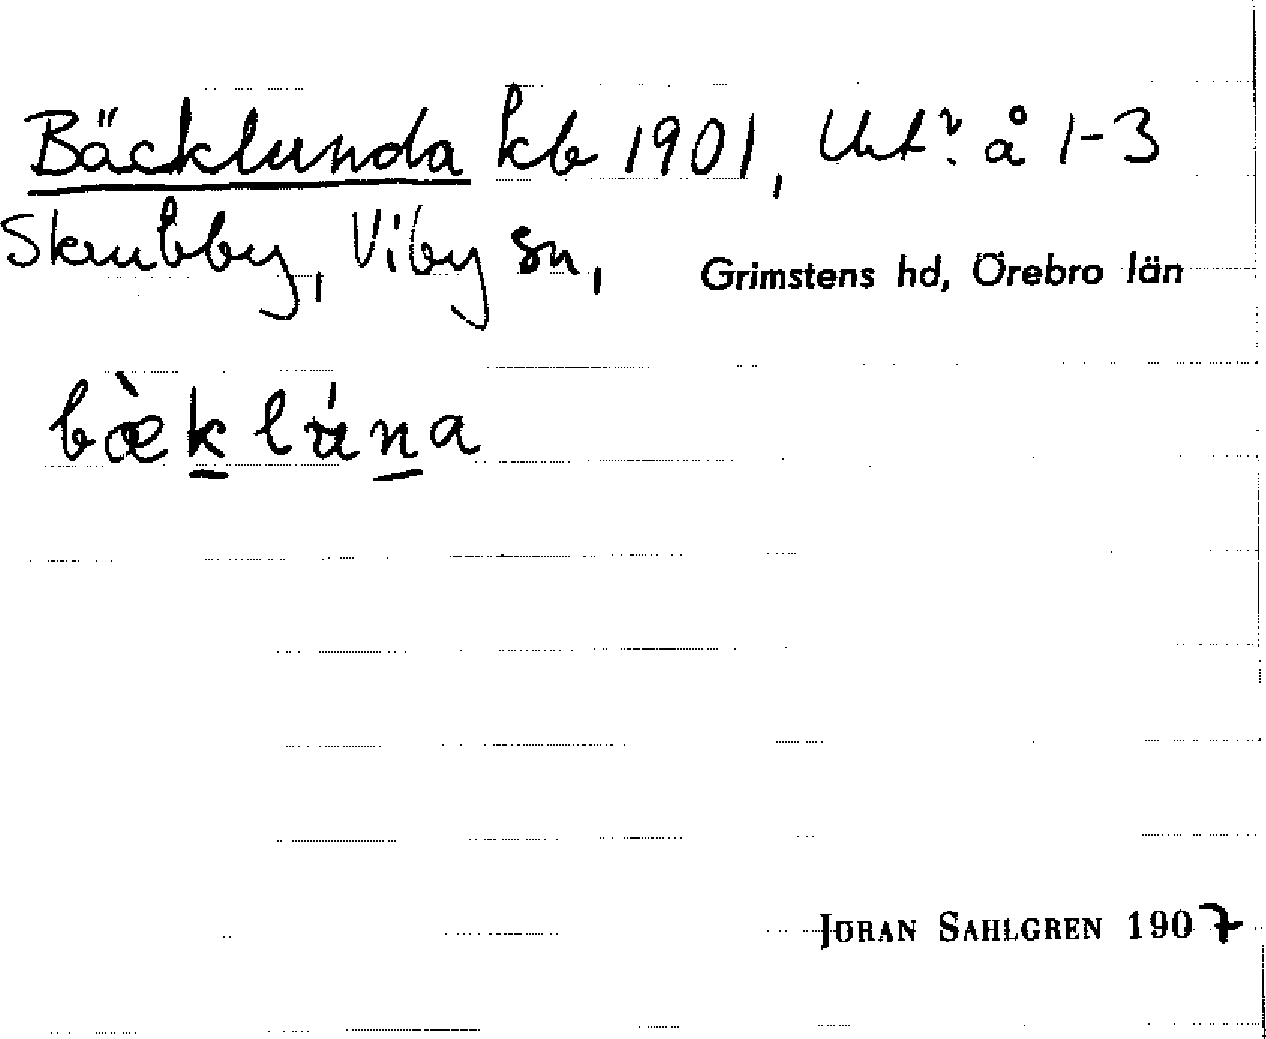 Bäcklunda kb 1901, Unt? å 1-3
Skrubby, Viby sn, Grimstens hd, Örebro län
bæ̀klúna
JÖRAN SAHLGREN 1907